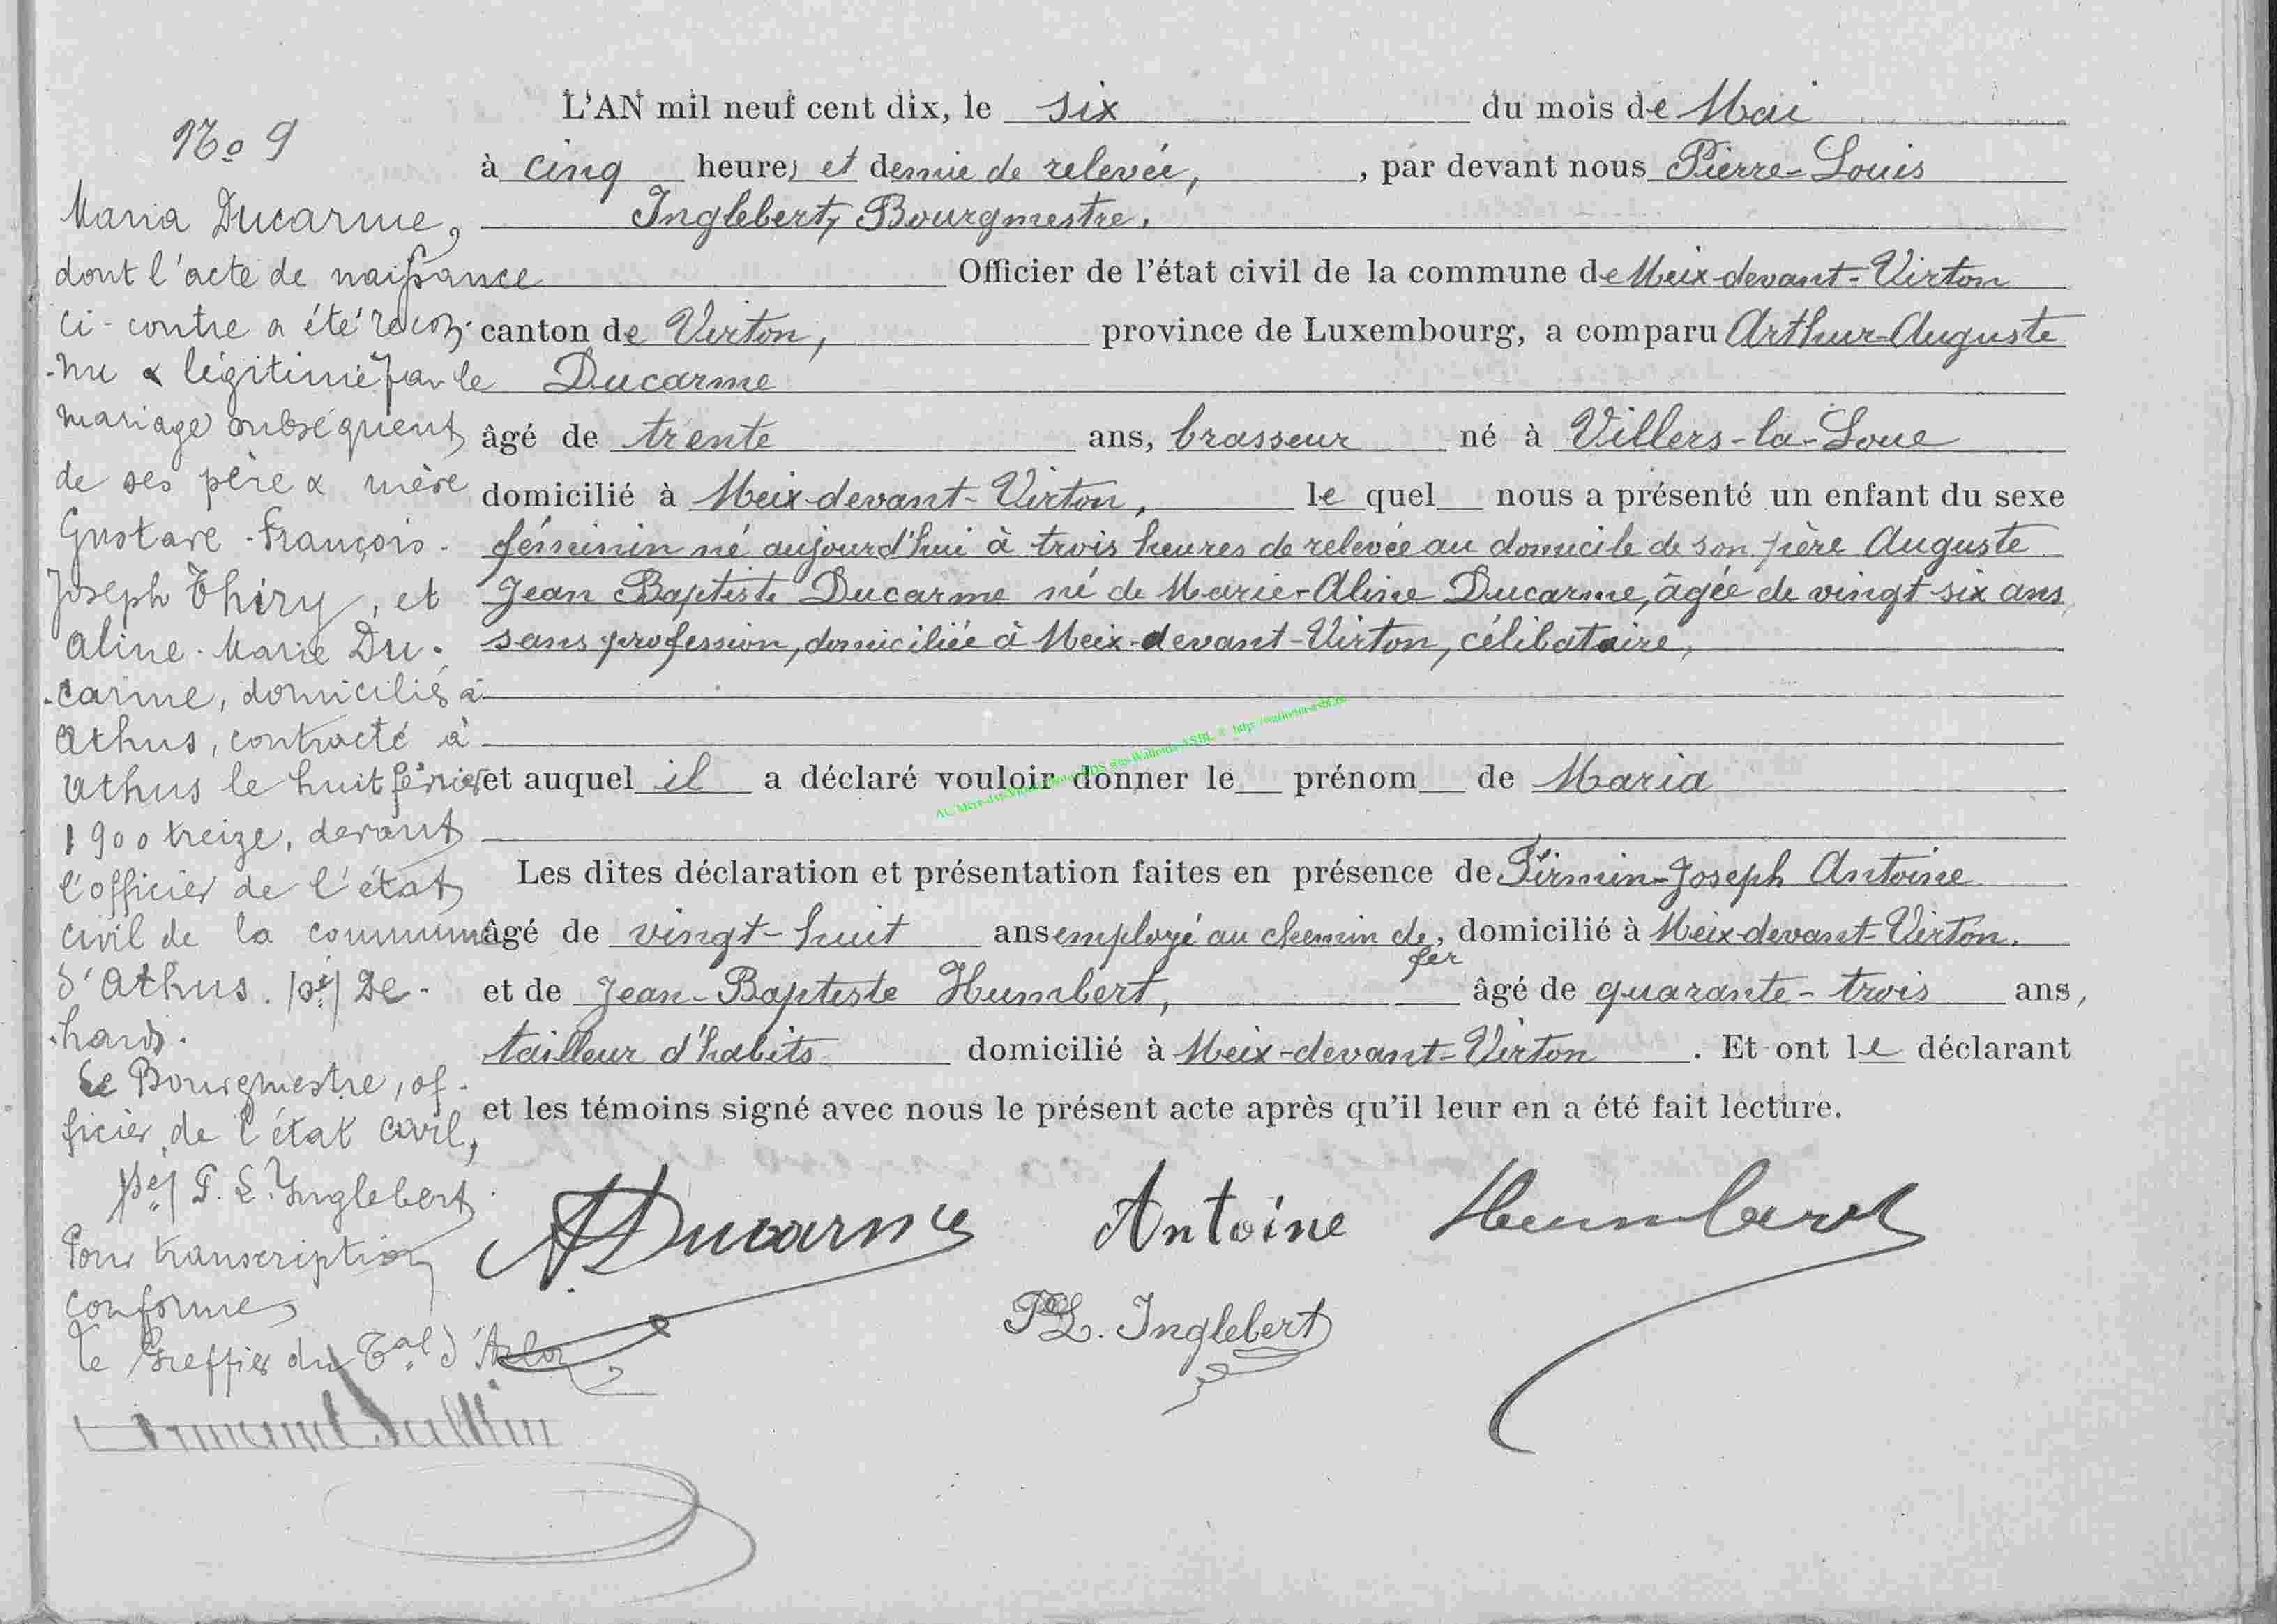 No 9
Maria Ducarme,
dont l'acte de naissance
ci-contre a été recon-
-nu & légitimé par le
mariage subséquent
de ses père & mère
Gustave-François-
Joseph Thiry, et
Aline-Marie Du-
-carme, domiciliés à
Athus, contracté à
Athus le huit février
1900 treize, devant
l'officier de l'état
civil de la commune
d'Athus.
Le Bourgmestre, of-
ficier de l'état civil,
P. L. Inglebert
Pour transcription
conforme
Le Greffier du Tal d'Arlon
L'AN mil neuf cent dix, le six du mois de Mai
à cinq heures et demie de relevée, , par devant nous Pierre-Louis
Inglebert, Bourgmestre.
Officier de l'état civil de la commune de Meix-devant-Virton
canton de Virton, province de Luxembourg, a comparu Arthur-Auguste
Ducarme
âgé de trente ans, brasseur né à Villers-la-Loue
domicilié à Meix-devant-Virton, le quel nous a présenté un enfant du sexe
féminin né aujourd'hui à trois heures de relevée au domicile de son père Auguste
Jean Baptiste Ducarme né de Marie-Aline Ducarme, âgée de vingt-six ans
sans profession, domiciliée à Meix-devant-Virton, célibataire,
et auquel il a déclaré vouloir donner le prénom de Maria
Les dites déclaration et présentation faites en présence de Firmin-Joseph Antoine
âgé de vingt-huit ans employé au chemin de fer, domicilié à Meix-devant-Virton.
et de Jean-Baptiste Humbert, âgé de quarante-trois ans,
tailleur d'habits domicilié à Meix-devant-Virton. Et ont le déclarant
et les témoins signé avec nous le présent acte après qu'il leur en a été fait lecture.
ADucarme Antoine Humbert
PL. Inglebert